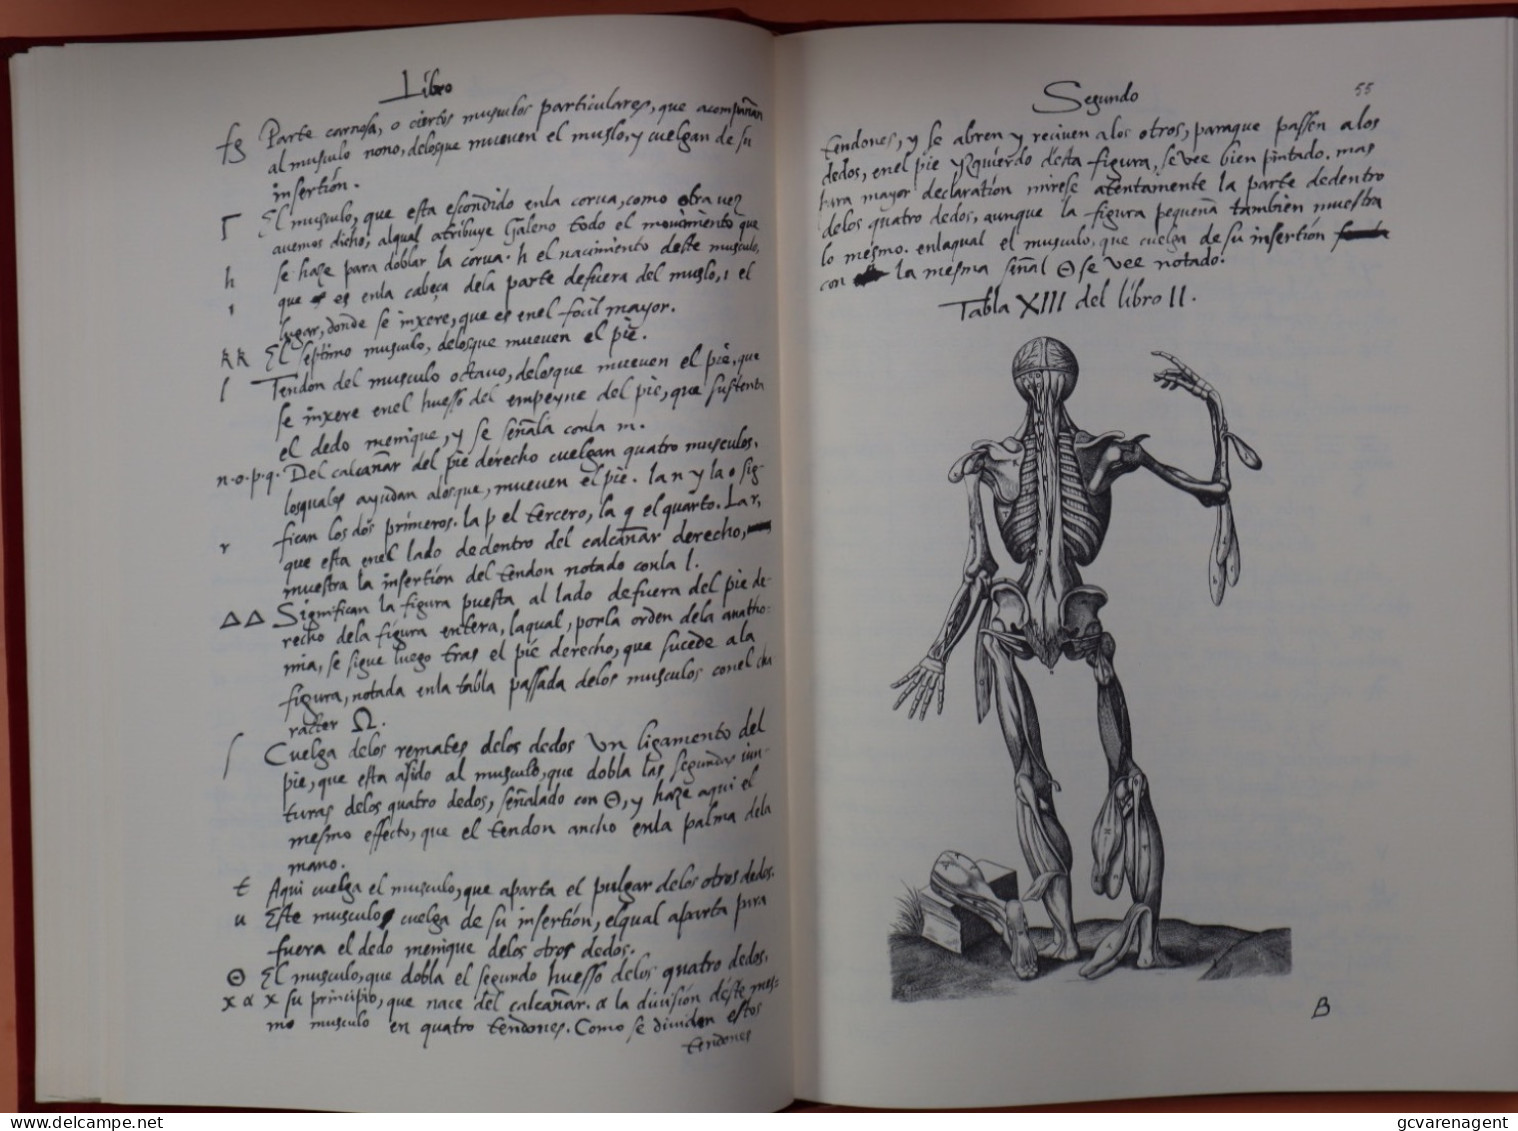 Libro
fg Parte carnosa, o ciertos musculos particulares, que acompañan
al musculo nono, delosque mueuen el muslo, y cuelgan de su
insertión.
Γ El musculo, que esta escondido enla corua, como otra vez
auemos dicho, alqual atribuye Galeno todo el mouimiento que
h se haze para doblar la corua. h el nacimiento deste musculo,
ı que es enla cabeça dela parte defuera del muslo, ı el
lugar, donde se inxere, que es enel focil mayor.
kk El septimo musculo, delosque mueuen el pie.
l Tendon del musculo octauo, delosque mueuen el pie, que
se inxere enel huesso del empeyne del pie, que sustenta
el dedo menique, y se señala conla m.
n.o.p.q. Del calcañar del pie derecho cuelgan quatro musculos,
losquales ayudan alosque, mueuen el pie. la n y la o sig-
fican los dos primeros. la p el tercero, la q el quarto. La r,
r que esta enel lado dedentro del calcañar derecho,
muestra la insertión del tendon notado conla l.
ΔΔ Significan la figura puesta al lado defuera del pie de-
recho dela figura entera, laqual, porla orden dela anatho-
mia, se sigue luego tras el pie derecho, que sucede a la
figura, notada enla tabla passada delos musculos conel cha
racter Ω.
ſ Cuelga delos remates delos dedos vn ligamento del
pie, que esta asido al musculo, que dobla las segundas iun-
turas delos quatro dedos, señalado con Θ, y haze aqui el
mesmo effecto, que el tendon ancho enla palma dela
mano.
t Aqui cuelga el musculo, que aparta el pulgar delos otros dedos.
u Este musculo cuelga de su insertión, elqual aparta para
fuera el dedo menique delos otros dedos.
Θ El musculo, que dobla el segundo huesso delos quatro dedos,
x α x su principio, que nace del calcañar. α la división déste mes-
mo musculo en quatro tendones. Como se diuiden estos
tendones
Segundo 55
tendones, y se abren y reciuen alos otros, paraque passen alos
dedos, enel pie yzquierdo desta figura, se vee bien pintado. mas
para mayor declaratión mirese atentamente la parte dedentro
delos quatro dedos, aunque la figura pequeña tambien muestra
lo mesmo. enlaqual el musculo, que cuelga de su insertión
con la mesma señal Θ se vee notado.
Tabla XIII del libro II.
B
gcvarenagent